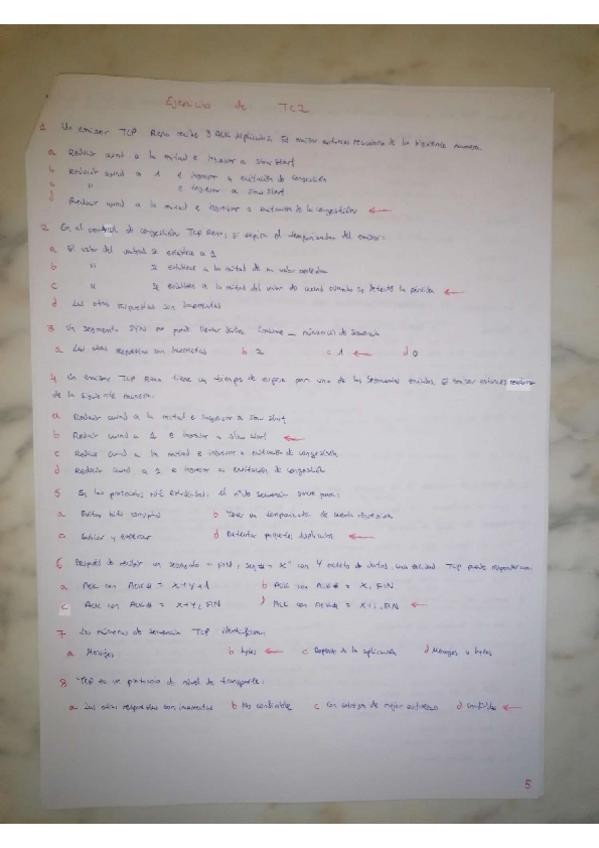 Ejercicios de TC2
1 Un emisor TCP Reno recibe 3 ACK duplicados. El emisor entonces reacciona de la siguiente manera
a Reducir cwnd a la mitad e ingresar a slow start
b Reducir cwnd a 1 e ingresar a evitación de congestión
c " e ingresar a slow start
d Reducir cwnd a la mitad e ingresar a evitación de la congestión ←
2 En el control de congestión TCP Reno, si expira el temporizador del emisor:
a El valor del umbral se establece a 1
b " se establece a la mitad de su valor
c " se establece a la mitad del valor de cwnd cuando se detectó la pérdida ←
d Las otras respuestas son incorrectas
3 Un segmento SYN no puede llevar datos. Consume _ número(s) de secuencia
a Las otras respuestas son incorrectas b 2 c 1 ← d 0
4 Un emisor TCP Reno tiene un tiempo de espera para uno de los segmentos enviados. El emisor entonces reacciona
de la siguiente manera:
a Reducir cwnd a la mitad e ingresar a slow start
b Reducir cwnd a 1 e ingresar a slow start ←
c Reducir cwnd a la mitad e ingresar a evitación de congestión
d Reducir cwnd a 1 e ingresar a evitación de congestión
5 En los protocolos rdt estudiados, el nº de secuencia sirve para:
a Evitar bits corruptos b Tener un temporizador de cuenta regresiva
c Enviar y esperar d Detectar paquetes duplicados ←
6 Después de recibir un segmento "FIN, seq# = X" con Y octetos de datos, una entidad TCP puede responder con:
a ACK con ACK# = X+Y+1 b ACK con ACK# = X, FIN
c ACK con ACK# = X+Y, FIN d ACK con ACK# = X+1, FIN ←
7 Los números de secuencia TCP identifican:
a Mensajes b bytes ← c Depende de la aplicación d Mensajes y bytes
8 TCP es un protocolo de nivel de transporte:
a Las otras respuestas son incorrectas b No confiable c Con entrega de mejor esfuerzo d Confiable ←
5